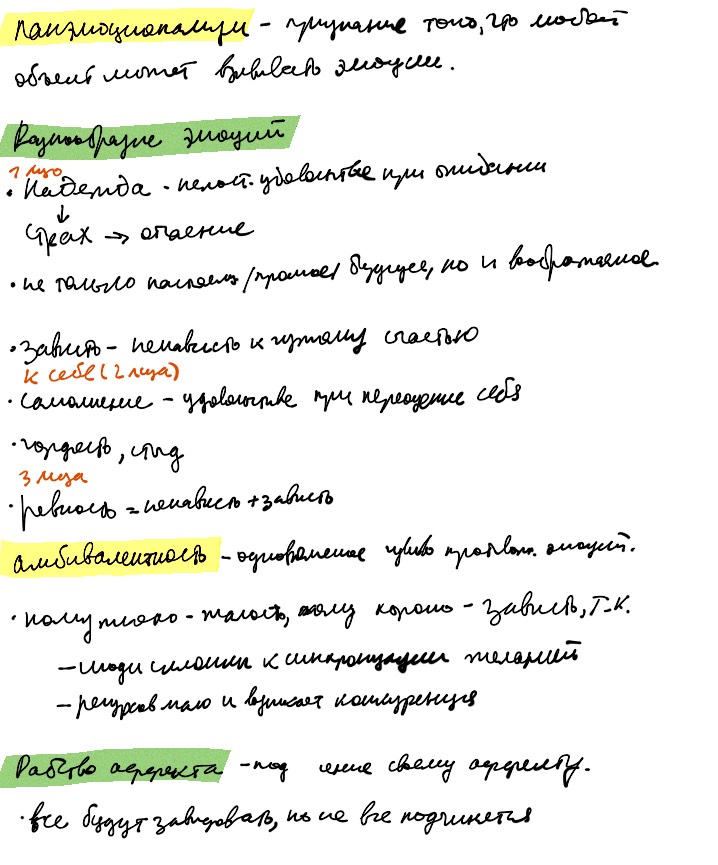 Панэмоционализм - признание того, что любой
объект может вызывать эмоции.
Разнообразие эмоций
1 лицо
• Надежда - непост. удовольствие при ожидании
↓
страх → опасение
• не только настоящ/прошлое/будущее, но и воображаемое
• зависть - ненависть к чужому счастью
к себе (2 лица)
• самомнение - удовольствие при переоценке себя
• гордость, стыд
3 лица
• ревность = ненависть + зависть
амбивалентность - одновременное чувство противоп. эмоций.
• кому плохо - жалость, кому хорошо - зависть, т.к.
- люди склонны к синхронизации желаний
- ресурсов мало и возникает конкуренция
Рабство аффекта - под ение своему аффекту.
• все будут завидовать, но не все подчинятся